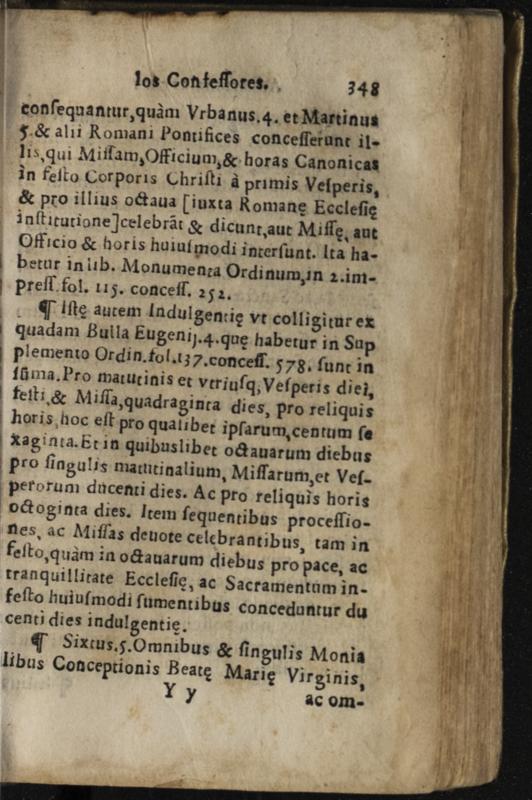 los Confeſſores. 348
conſequantur,quàm Vrbanus.4. et Martinus
5.& alii Romani Pontifices conceſſerunt il-
lis,qui Miſſam,Officium,& horas Canonicas
in feſto Corporis Chriſti à primis Veſperis,
& pro illius octaua [iuxta Romanę Eccleſię
inſtitutione]celebrãt & dicunt,aut Miſſę, aut
Officio & horis huiuſmodi interſunt. Ita ha-
betur in lib. Monumenta Ordinum,in 2.im-
preſſ.fol. 115. conceſſ. 252.
¶ Iſtę autem Indulgentię vt colligitur ex
quadam Bulla Eugenij.4.quę habetur in Sup
plemento Ordin.fol.137.conceſſ. 578. ſunt in
ſũma.Pro matutinis et vtriuſq; Veſperis diei,
feſti,& Miſſa,quadraginta dies, pro reliquis
horis,hoc eſt pro qualibet ipſarum,centum ſe
xaginta.Et in quibuslibet octauarum diebus
pro ſingulis matutinalium, Miſſarum,et Veſ-
perorum ducenti dies. Ac pro reliquis horis
octoginta dies. Item ſequentibus proceſſio-
nes, ac Miſſas deuote celebrantibus, tam in
feſto,quàm in octauarum diebus pro pace, ac
tranquillitate Eccleſię, ac Sacramentum in-
feſto huiuſmodi ſumentibus conceduntur du
centi dies indulgentię.
¶ Sixtus.5.Omnibus & ſingulis Monia
libus Conceptionis Beatę Marię Virginis,
Y y ac om-